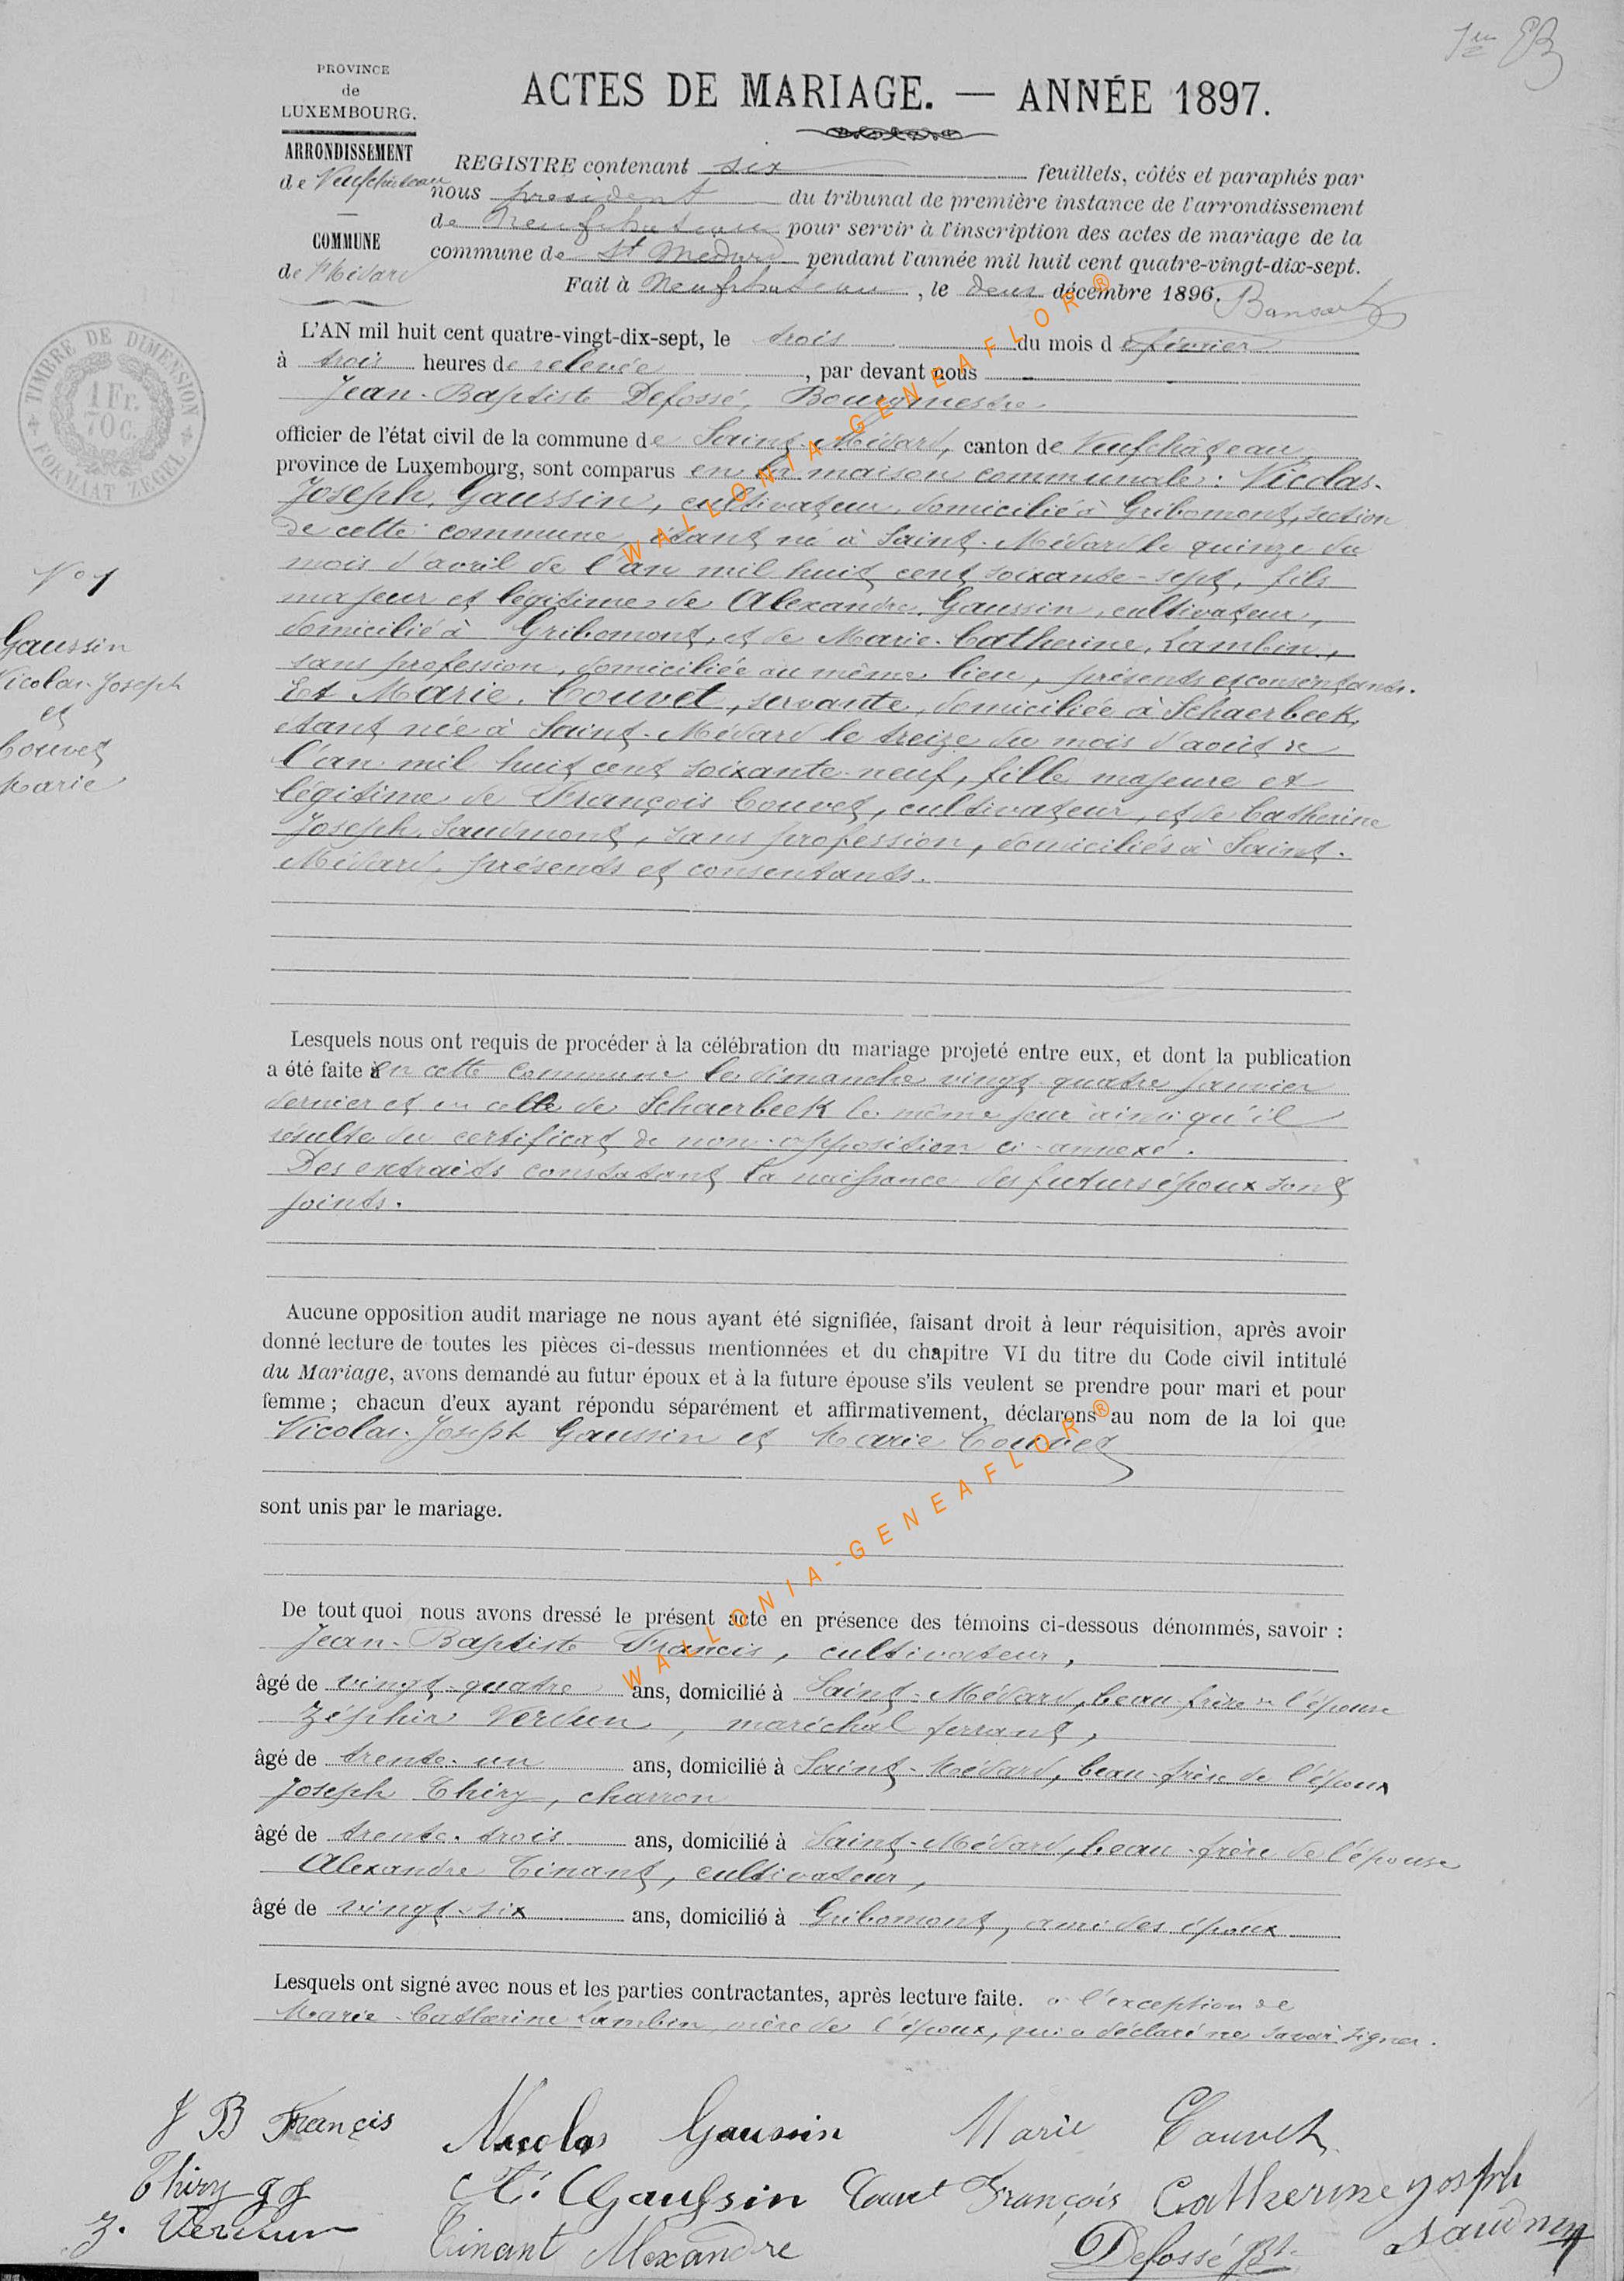 PROVINCE
de
LUXEMBOURG.
ARRONDISSEMENT
de Neufchâteau
COMMUNE
de St Médard
ACTES DE MARIAGE. — ANNÉE 1897.
REGISTRE contenant six feuillets, côtés et paraphés par
nous président du tribunal de première instance de l'arrondissement
de Neufchateau pour servir à l'inscription des actes de mariage de la
commune de St Médard pendant l'année mil huit cent quatre-vingt-dix-sept.
Fait à Neufchateau, le deux décembre 1896.
TIMBRE DE DIMENSION
1 Fr.
70 C.
FORMAAT ZEGEL
L'AN mil huit cent quatre-vingt-dix-sept, le trois du mois de février
à trois heures de relevée, par devant nous
Jean-Baptiste Defossé, Bourgmestre
officier de l'état civil de la commune de Saint-Médard, canton de Neufchâteau,
province de Luxembourg, sont comparus en la maison communale: Nicolas-
Joseph, Gaussin, cultivateur, domicilié à Gribomont, section
de cette commune, étant né à Saint-Médard le quinze du
mois d'avril de l'an mil huit cent soixante-sept, fils
majeur et legitime de Alexandre, Gaussin, cultivateur,
domicilié à Gribomont, et de Marie-Catherine, Lambin,
sans profession, domiciliée au même lieu, présents et consentants.
Et Marie, Couvet, servante, domiciliée à Schaerbeek,
etant née à Saint-Médard le treize du mois d'août de
l'an mil huit cent soixante-neuf, fille majeure et
légitime de François Couvet, cultivateur, et de Catherine
Joseph, Saudmont, sans profession, domiciliés à Saint-
Médard, présents et consentants.
N° 1
Gaussin
Nicolas-Joseph
et
Couvet
Marie
Lesquels nous ont requis de procéder à la célébration du mariage projeté entre eux, et dont la publication
a été faite à en cette commune le dimanche vingt-quatre janvier
dernier et en celle de Schaerbeek le même jour ainsi qu'il
résulte du certificat de non-opposition ci-annexé.
Des extraits constatant la naissance des futurs époux sont
joints.
Aucune opposition audit mariage ne nous ayant été signifiée, faisant droit à leur réquisition, après avoir
donné lecture de toutes les pièces ci-dessus mentionnées et du chapitre VI du titre du Code civil intitulé
du Mariage, avons demandé au futur époux et à la future épouse s'ils veulent se prendre pour mari et pour
femme ; chacun d'eux ayant répondu séparément et affirmativement, déclarons au nom de la loi que
Nicolas-Joseph Gaussin et Marie Couvet
sont unis par le mariage.
De tout quoi nous avons dressé le présent acte en présence des témoins ci-dessous dénommés, savoir :
Jean-Baptiste Francis, cultivateur,
âgé de vingt-quatre ans, domicilié à Saint-Médard, beau-frère de l'épouse
Zéphir Verdun, maréchal ferrant,
âgé de trente-un ans, domicilié à Saint-Médard, beau-frère de l'époux
Joseph Thiry, charron
âgé de trente-trois ans, domicilié à Saint-Médard, beau-frère de l'épouse
Alexandre Tinant, cultivateur,
âgé de vingt-six ans, domicilié à Gribomont, ami des époux
Lesquels ont signé avec nous et les parties contractantes, après lecture faite. à l'exception de
Marie-Catherine Lambin, mère de l'époux, qui a déclaré ne savoir signer.
J B Françis Nicolas Gaussin Marie Couvet
Thiry A. Gaussin Couvet François Catherine Joseph
Z. Verdun Tinant Alexandre Defossé JBt
WALLONIA-GENEAFLOR®
WALLONIA-GENEAFLOR®